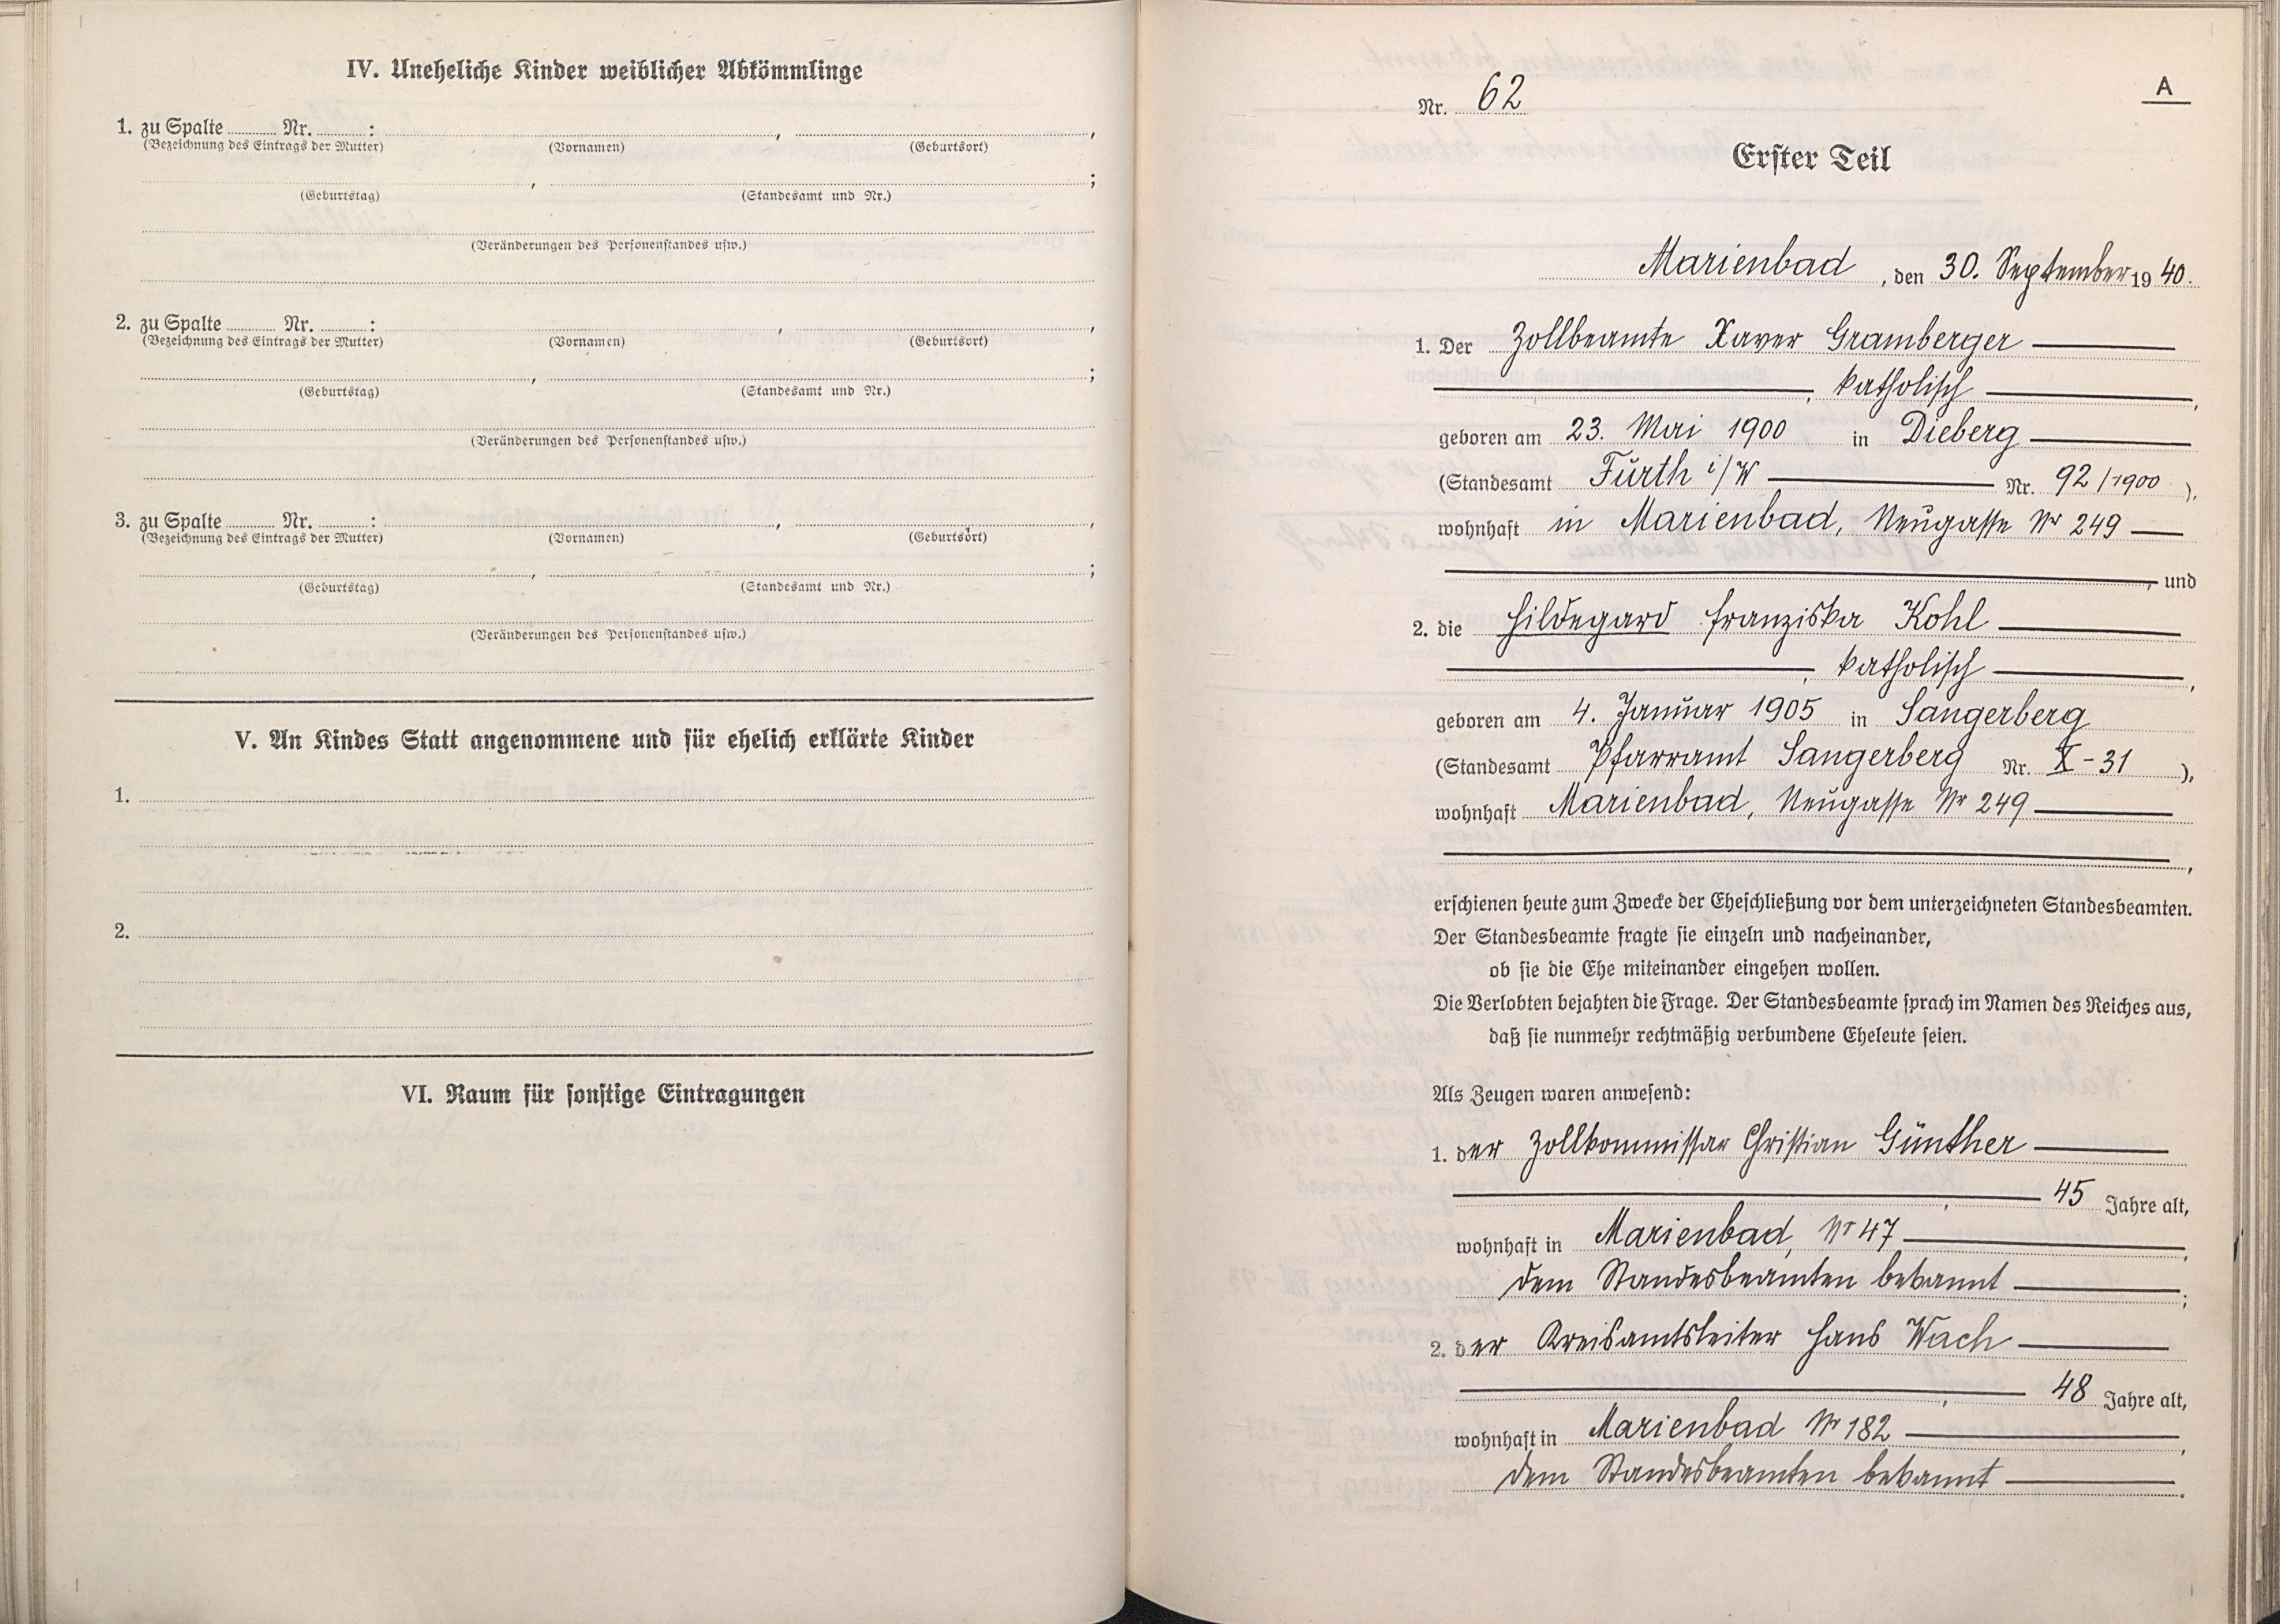 IV. Uneheliche Kinder weiblicher Abkömmlinge
1. zu Spalte ........ Nr. ........ : , ,
(Bezeichnung des Eintrags der Mutter) (Vornamen) (Geburtsort)
, ;
(Geburtstag) (Standesamt und Nr.)
(Veränderungen des Personenstandes usw.)
2. zu Spalte ........ Nr. ........ : , ,
(Bezeichnung des Eintrags der Mutter) (Vornamen) (Geburtsort)
, ;
(Geburtstag) (Standesamt und Nr.)
(Veränderungen des Personenstandes usw.)
3. zu Spalte ........ Nr. ........ : , ,
(Bezeichnung des Eintrags der Mutter) (Vornamen) (Geburtsort)
, ;
(Geburtstag) (Standesamt und Nr.)
(Veränderungen des Personenstandes usw.)
V. An Kindes Statt angenommene und für ehelich erklärte Kinder
1.
2.
VI. Raum für sonstige Eintragungen
A
Nr. 62
Erster Teil
Marienbad, den 30. September 1940.
1. Der Zollbeamte Xaver Gramberger
, katholisch ,
geboren am 23. Mai 1900 in Dieberg
(Standesamt Fürth i/W Nr. 92/1900),
wohnhaft in Marienbad, Neugasse Nr 249
, und
2. die Hildegard Franziska Kohl
, katholisch ,
geboren am 4. Januar 1905 in Sangerberg
(Standesamt Pfarramt Sangerberg Nr. X-31),
wohnhaft Marienbad, Neugasse Nr 249
,
erschienen heute zum Zwecke der Eheschließung vor dem unterzeichneten Standesbeamten.
Der Standesbeamte fragte sie einzeln und nacheinander,
ob sie die Ehe miteinander eingehen wollen.
Die Verlobten bejahten die Frage. Der Standesbeamte sprach im Namen des Reiches aus,
daß sie nunmehr rechtmäßig verbundene Eheleute seien.
Als Zeugen waren anwesend:
1. der Zollkommissar Christian Günther
, 45 Jahre alt,
wohnhaft in Marienbad, Nr 47 ,
dem Standesbeamten bekannt ;
2. der Kreisamtsleiter Hans Wach
, 48 Jahre alt,
wohnhaft in Marienbad Nr 182 ,
dem Standesbeamten bekannt .